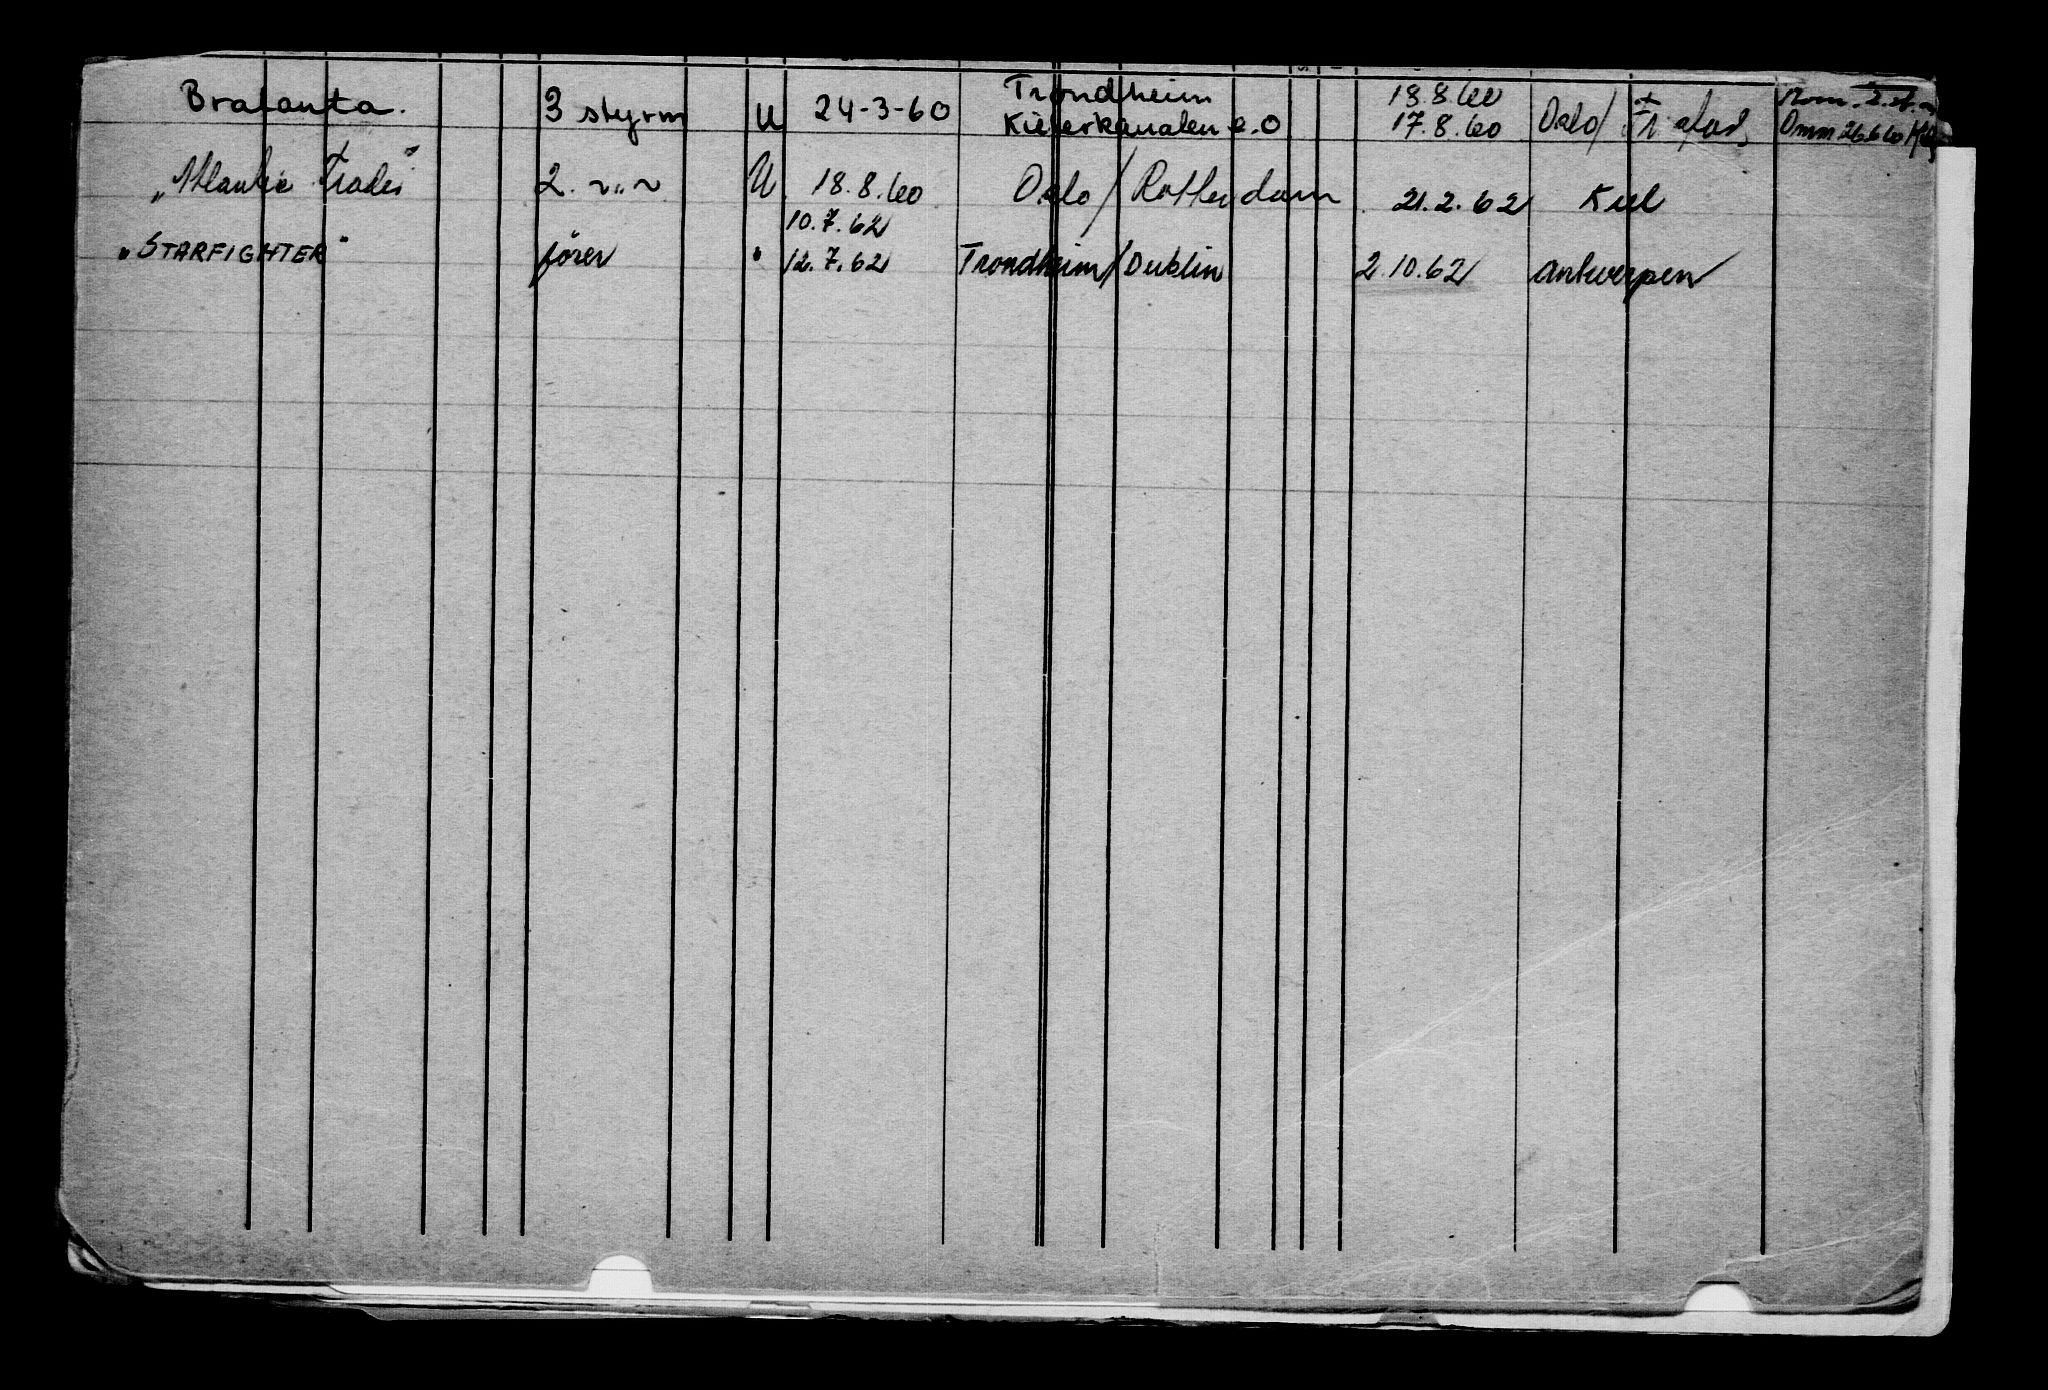 Brafanta. 3 styrm U 24-3-60 Trondheim 18.8.60
Kielerkanalen e.O 17.8.60 Oslo/ Omm. 26.6.60
"Atlantic Trader" 2. -"- U 18.8.60 Oslo / Rotterdam 21.2.62 Kiel
10.7.62
"STARFIGHTER" fører " 12.7.62 Trondheim/Dublin 2.10.62 Antwerpen